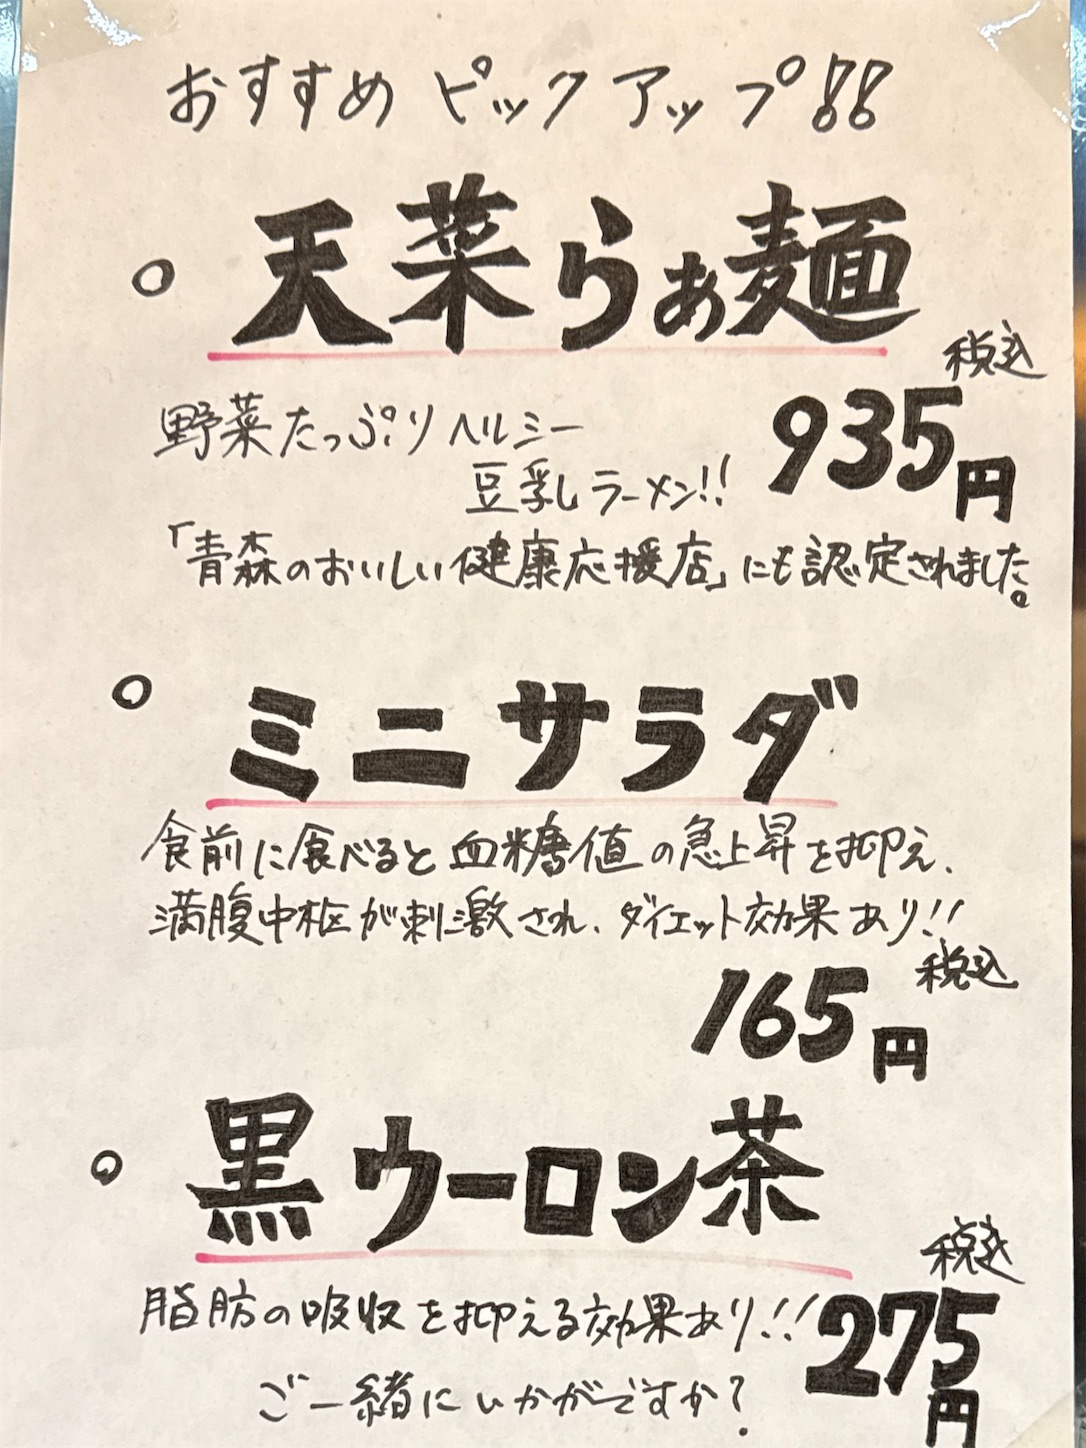 おすすめ ピックアップ!!
○ 天菜らぁ麺
税込
935円
野菜たっぷりヘルシー
豆乳ラーメン!!
「青森のおいしい健康応援店」にも認定されました。
○ ミニサラダ
食前に食べると血糖値の急上昇を抑え、
満腹中枢が刺激され、ダイエット効果あり!!
税込
165円
○ 黒ウーロン茶
税込
脂肪の吸収を抑える効果あり!!
275円
ご一緒にいかがですか?